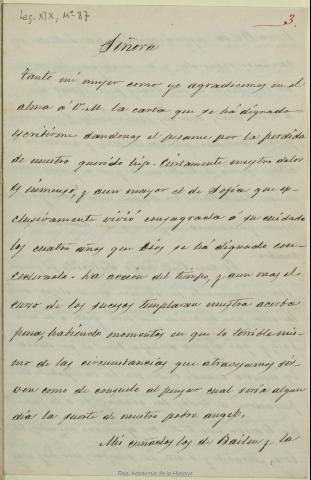 Leg. XIX, nº 87
3.
Señora
Tanto mi mujer como yo agradecemos en el
alma á V. M. la carta que se ha dignado
escribirme dandonos el pesame por la perdida
de nuestro querido hijo. Ciertamente nuestro dolor
es inmenso, y aun mayor el de Sofia que ex-
clusivamente vivió consagrada á su cuidado
los cuatro años que Dios se ha dignado con-
cedernoslo. La accion del tiempo, y aun mas el
curso de los sucesos templaran nuestra acerba
pena, habiendo momentos en que lo terrible mis-
mo de las circunstancias que atravesamos sir-
ven como de consuelo al pensar cual seria algun
dia la suerte de nuestro pobre angel.
Mis cuñados los de Bailen y la
Real Academia de la Historia